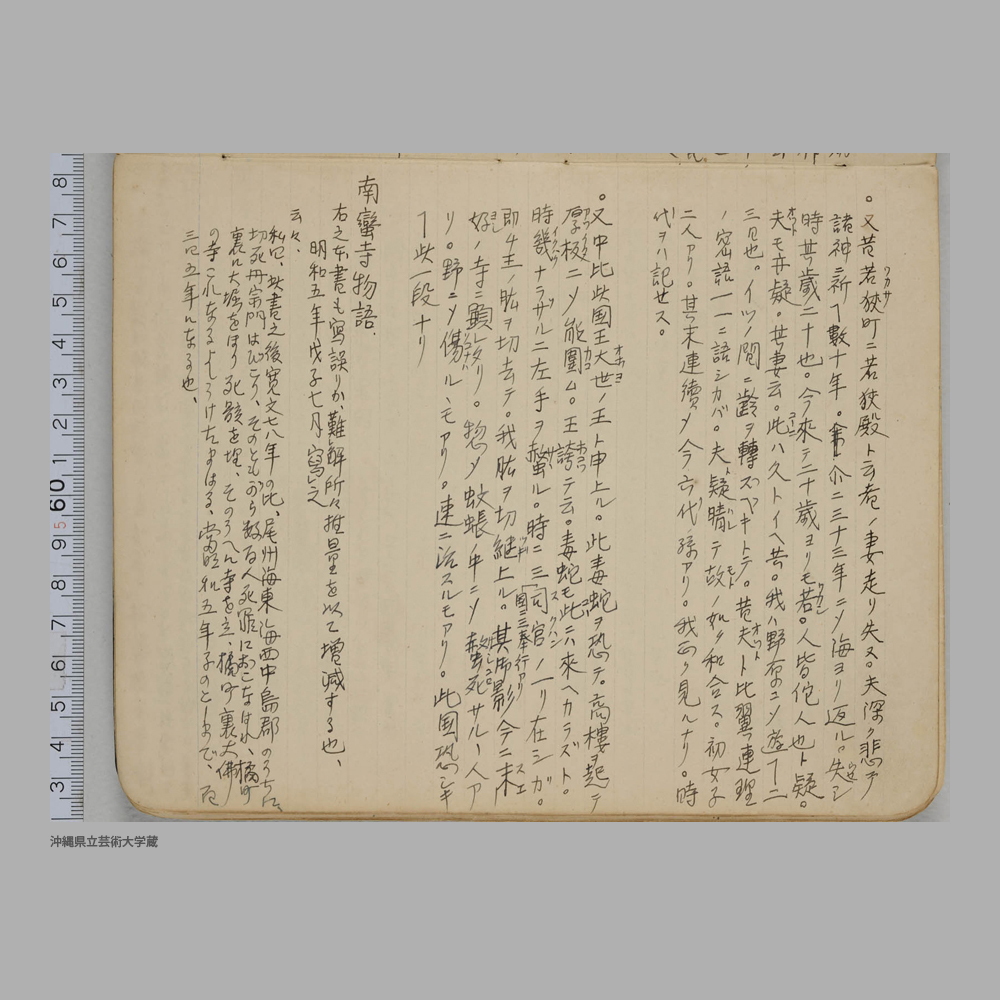 。又昔若狭町ニ若狭殿ト云者ノ妻走リ失ヌ。夫深ク悲テ
諸神ニ祈ヿ數十年。介ニ三十三年ニ〆海ヨリ返ル。失シ
時其歳二十也。今來テ二十歳ヨリモ若。人皆佗人也ト疑。
夫モ弁疑。其妻云。此ハ久トイヘ共。我ハ野原ニ〆遊ヿ二
三日也。イツノ間ニ齢ヲ轉スヤキトテ。昔夫ト比翼連理
ノ密語一一ニ語シカバ。夫疑晴テ故ノ如ク和合ス。初女子
二人アリ。其末連續〆今六代孫アリ。我云ク見ルナリ。時
代ヲハ記セス。
。又中比此國王大世ノ王ト申上ル。此毒蛇ヲ恐テ。高樓ヲ起テ
厚板ニ〆能圍ム。王誇テ云。毒蛇モ此ニハ來ヘカラズト。
時幾ナラザルニ左手ヲ螫ル。時ニ三司官ノ一リ在シガ。
国三奉行アリ
即チ王ノ肱ヲ切去テ。我肱ヲ切継上ル。其御影今ニ末
好ノ寺ニ顕レタリ。惣〆蚊帳ノ中ニ〆螫死サルヽ人ア
リ。野ニ〆傷ルヽモアリ。連ニ治スルモアリ。此国恐シキ
ヿ此一段ナリ
南蠻寺物語.
右之本書も寫誤りか、難解所々推量を以て増減する也、
明和五年戊子七月寫之
云々、
私曰、此書之後寛文七八年の比、尾州海東海西中島郡のうちに
切死丹宗門はびこり、そのともがら数百人死罪におこなはれ、橘町
裏に大堀をほり死骸を埋、そのうへに寺を立、橘町裏大佛
の寺これなるよしうけたまはる、當明和五年子のとしまで、百
三四五年になる也、
沖縄県立芸術大学蔵